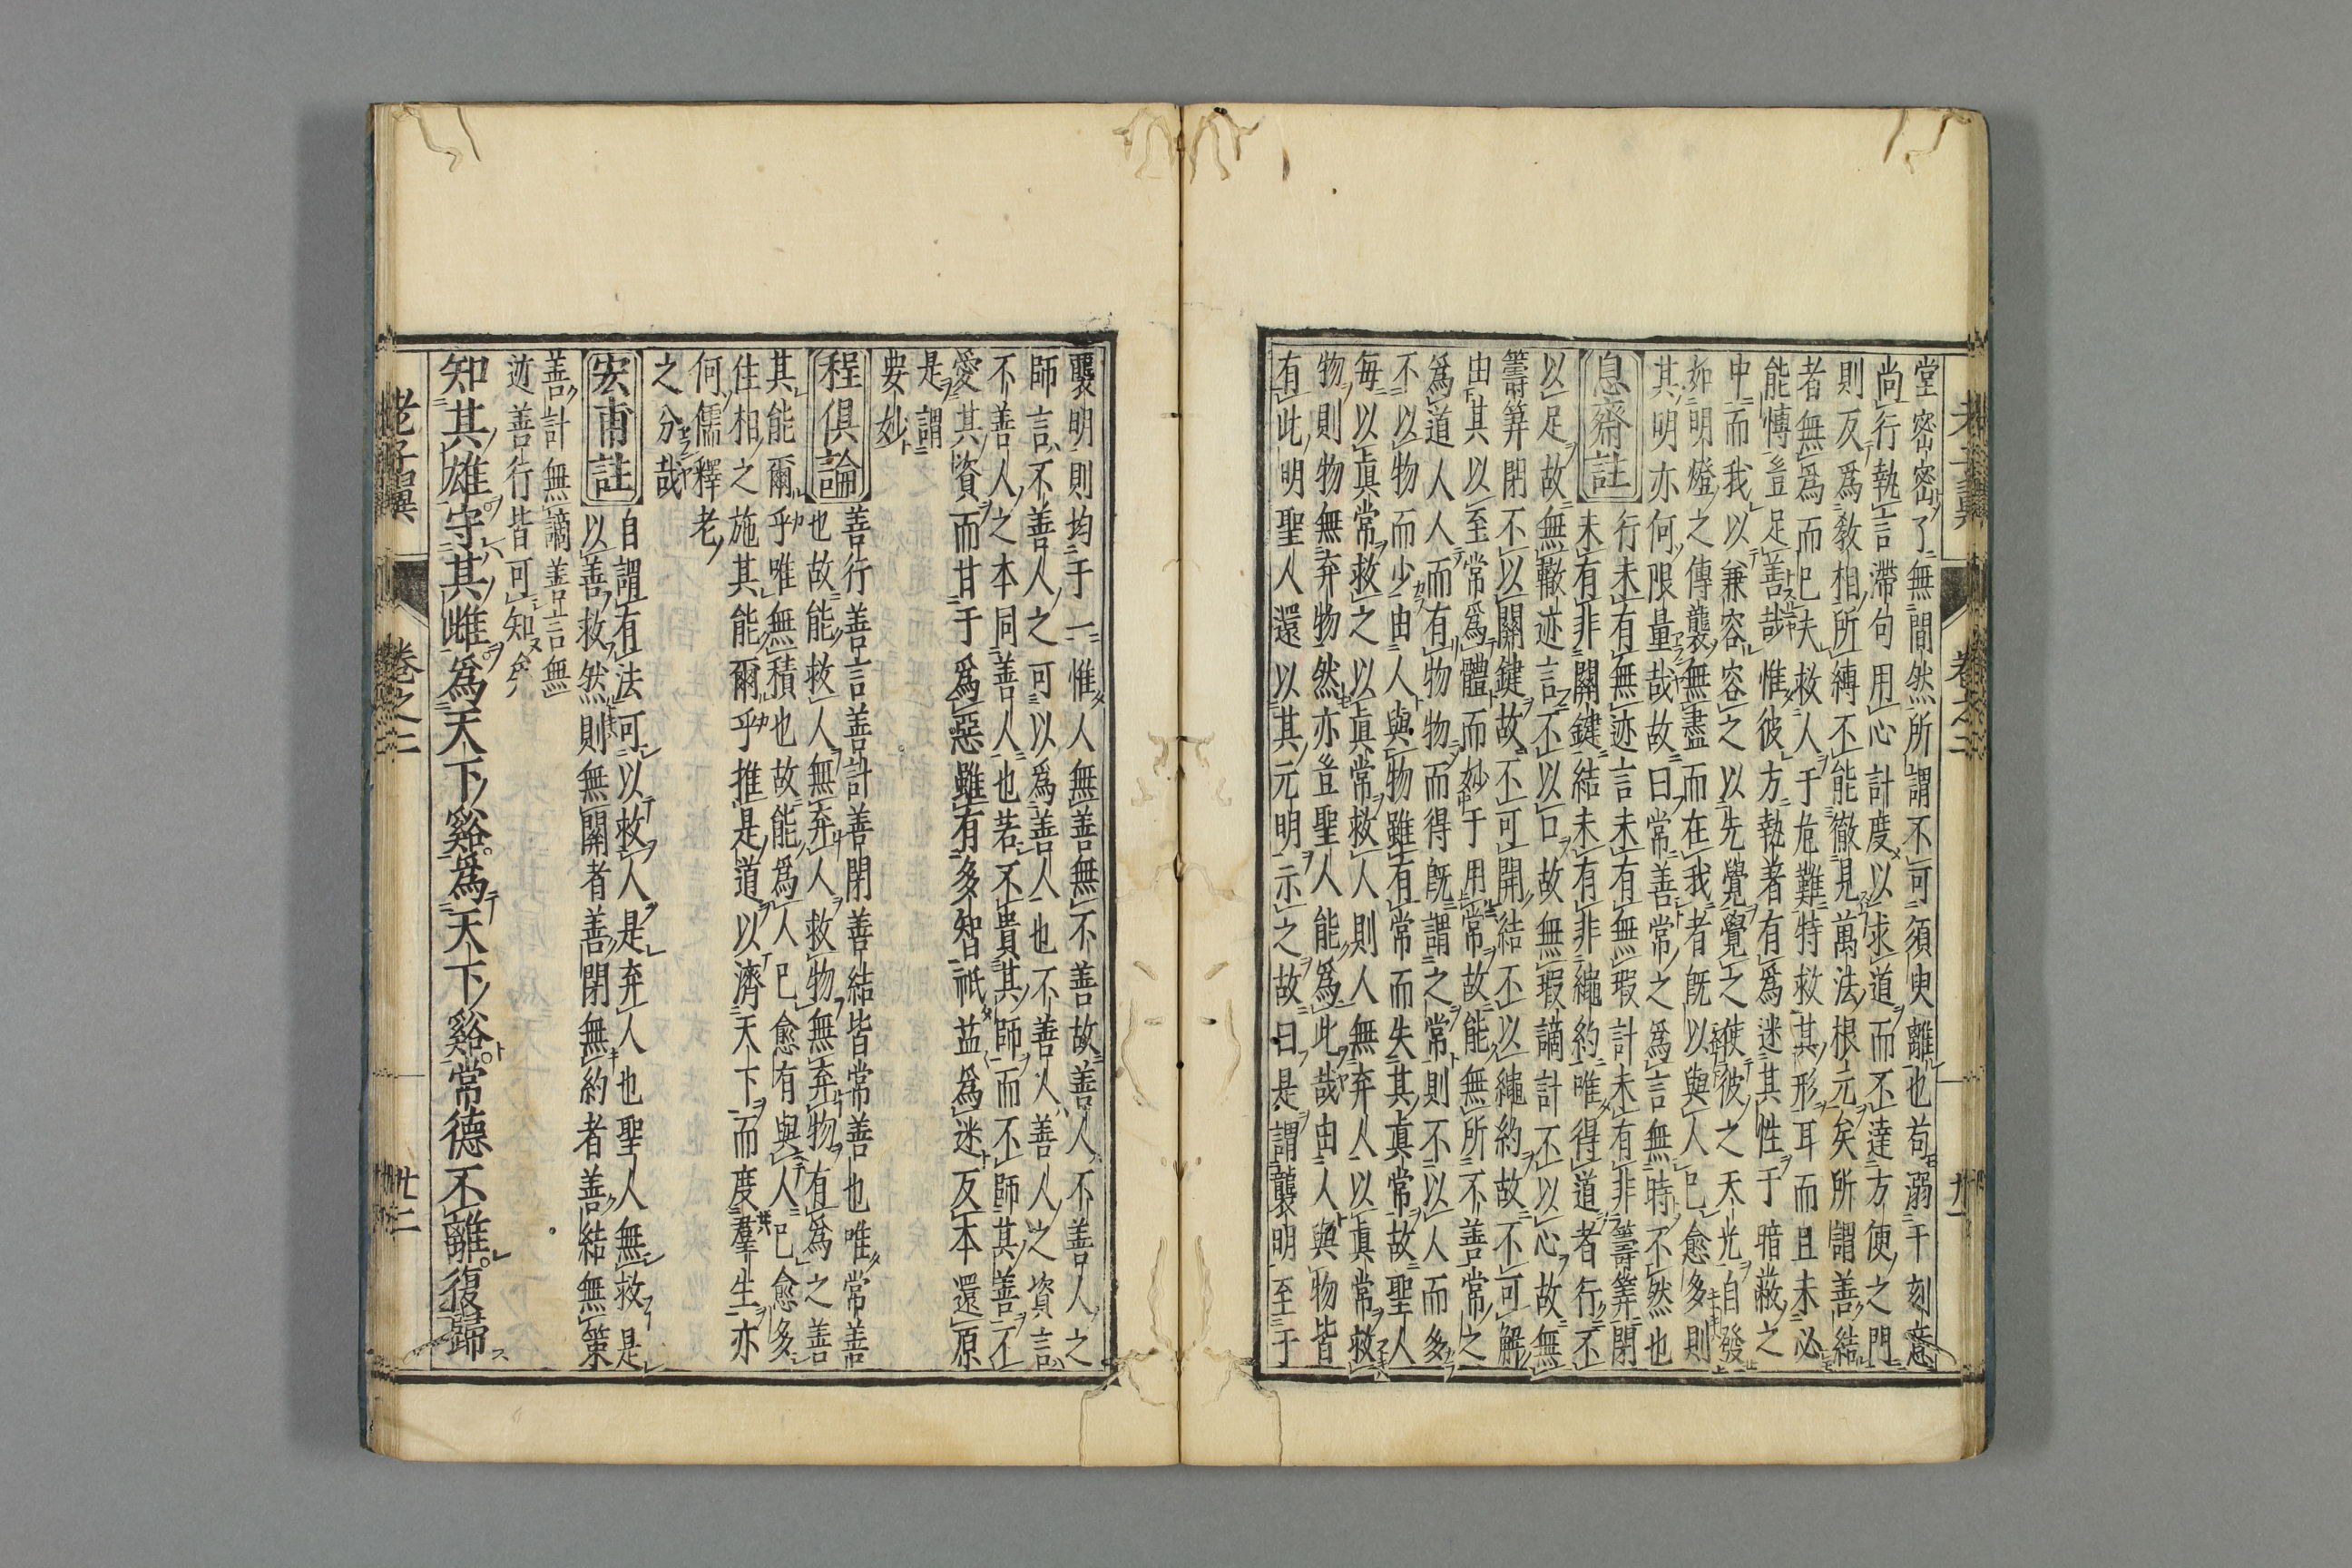 堂密密了無間然所謂不可須臾離也苟溺于刻意
尚行執言滯句用心計度以求道而不達方便之門
則反爲教相所縛不能徹見萬法根元矣所謂善結
者無爲而已夫救人于危難特救其形耳而且未必
能慱豈足善哉惟彼方執著有爲迷其性于暗蔽之
中而我以兼容容之以先覺覺之使彼之天光自發
如明燈之傳襲無盡而在我者既以與人己愈多則
其明亦何限量哉故曰常善常之爲言無時不然也
息齋註
行未有無迹言未有無瑕計未有非籌筭閉
未有非關鍵結未有非繩約唯得道者行不
以足故無轍迹言不以口故無瑕謫計不以心故無
籌筭閉不以關鍵故不可開結不以繩約故不可解
由其以至常爲體而妙于用常故能無所不善常之
爲道人人而有物物而得既謂之常則不以人而多
不以物而少由人與物雖有常而失其眞常故聖人
每以眞常救之以眞常救人則人無弃人以眞常救
物則物無弃物然亦豈聖人能爲此哉由人與物皆
有此明聖人還以其元明示之故曰是謂襲明至于
襲明則均于一惟人無善無不善故善人不善人之
師言不善人之可以爲善人也不善人善人之資言
不善人之本同善人也若不貴其師而不師其善不
愛其資而甘于爲惡雖有多智祇益爲迷反本還原
是謂
要妙
程俱論
善行善言善計善閉善結皆常善也唯常善
也故能救人無弃人救物無弃物有爲之善
其能爾乎唯無積也故能爲人己愈有與人己愈多
住相之施其能爾乎推是道以濟天下而度羣生亦
何儒釋老
之分哉
宏甫註
自謂有法可以救人是弃人也聖人無救是
以善救然則無關者善閉無約者善結無策
善計無謫善言無
迹善行皆可知矣
知其雄守其雌爲天下谿爲天下谿常德不離復歸
老子翼
卷之二
廿二